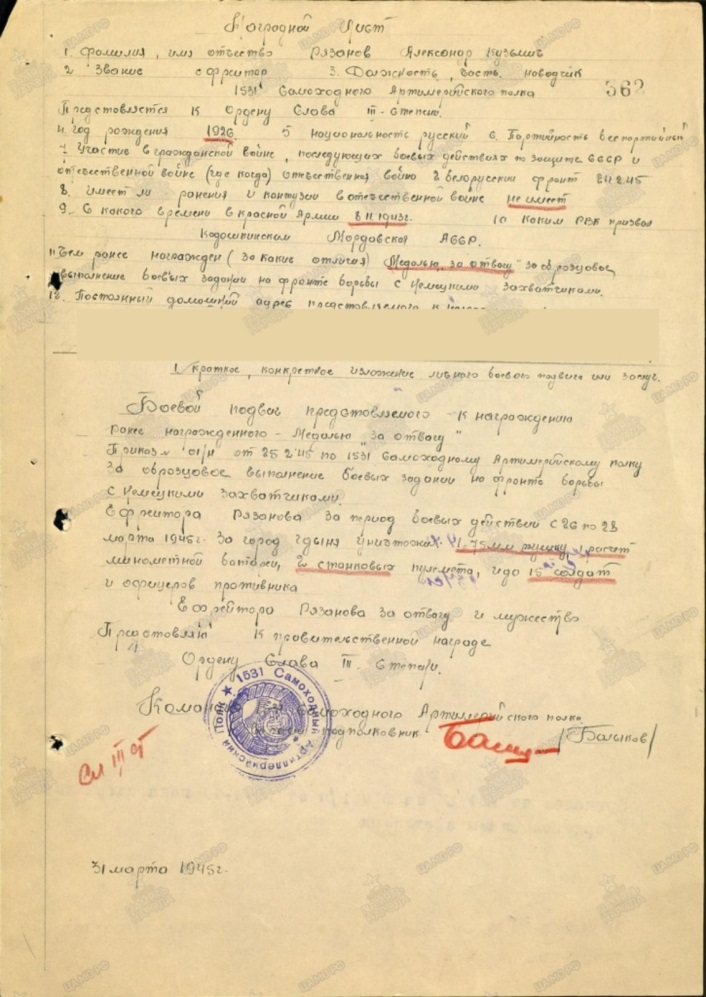 Наградной Лист
1. Фамилия, имя отчество Рязанов Александр Кузьмич
2 Звание ефрейтор 3. Должность, часть, наводчик
362
1531 Самоходного Артилерийского полка
Представляется к Ордену Слава III-степени.
4. год рождения 1926 5 национальность русский 6. Партийность беспартийный
7. Участие в гражданской войне, последующих боевых действиях по защите СССР и
отечественной войне (где когда) отечественная война 2 белорусский фронт 24.2.45
8. имеет ли ранения и контузии в отечественной войне не имеет
9. С какого времени в красной Армии 8 11 1943г. 10 Каким РВК призван
Кадошкинским Мордовская АССР.
11 Чем ранее награжден (за какие отличия) Медалью "за отвагу" за образцовое
выполнение боевых задании на фронте борьбы с Немецкими захватчиками.
12. Постоянный домашний адрес представляемого к
1. краткое, конкретное изложение личного боевого подвига или заслуг.
Боевой подвиг представляемого к награждению
ранее награжденного - Медалью "за отвагу"
Приказ № 01/н от 25 2 45 по 1531 Самоходному Артилерийскому полку
за образцовое выполнение боевых задании на фронте борьбы
с Немецкими захватчиками.
Ефрейтора Рязанова за период боевых действий с 26 по 28
марта 1945г. за город гдыня уничтожил 1-75мм пушку, 1 расчет
минометной батареи, 2 станковых пулемета, и до 15 солдат
и офицеров противника
Ефрейтора Рязанова за отвагу и мужество
Представляю к правительственной награде
Ордену Слава III. степени.
Самоходного Артилерийского полка
подполковник /Балыков/
1531 Самоходный Артиллерийский Полк
Сл III ст
31 марта 1945г.